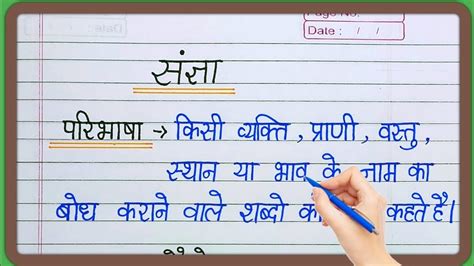 Page No.
Date : / /
संज्ञा
परिभाषा → किसी व्यक्ति , प्राणी , वस्तु ,
स्थान या भाव के नाम का
बोध कराने वाले शब्दो को कहते है।